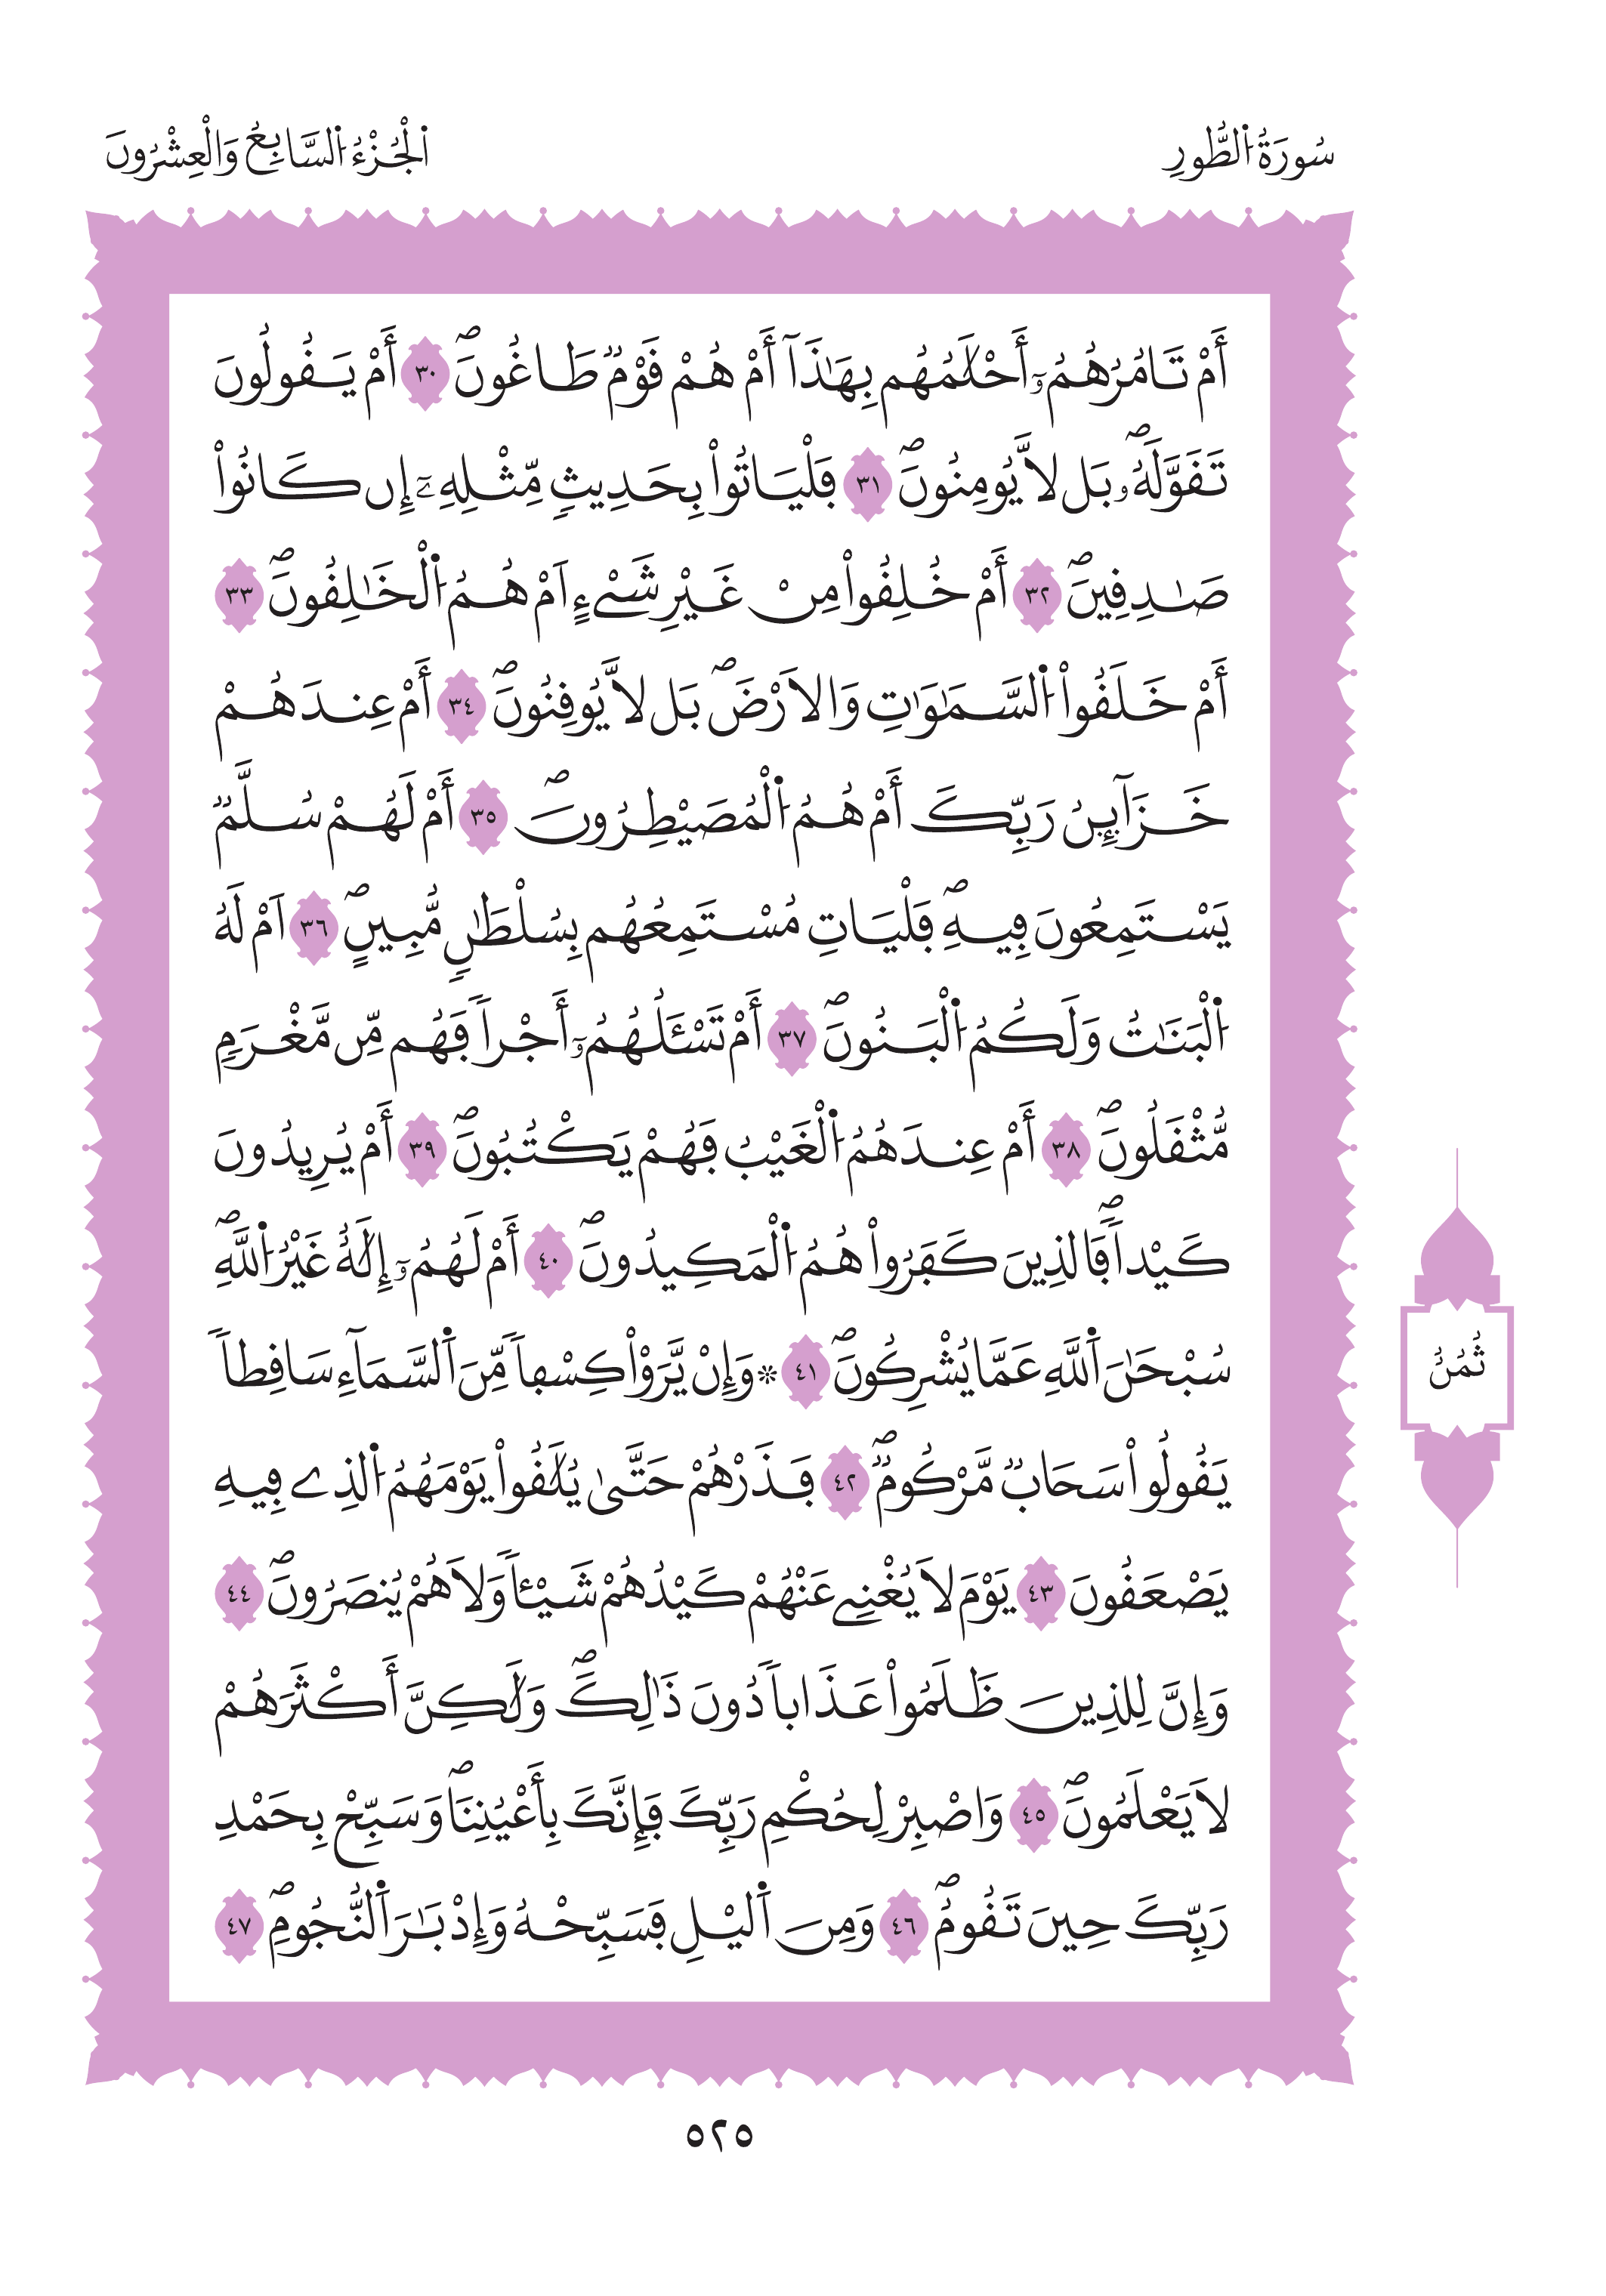 سُورَةُ اُ۬لطُّورِ
اُ۬لْجُزْءُ اُ۬لسَّابِعُ وَالْعِشْرُونَ
أَمْ تَامُرُهُمُۥٓ أَحْلَٰمُهُم بِهَٰذَآ أَمْ هُمْ قَوْمٞ طَاغُونَۖ ٣٠ أَمْ يَقُولُونَ
تَقَوَّلَهُۥۖ بَل لَّا يُومِنُونَۖ ٣١ فَلْيَاتُواْ بِحَدِيثٖ مِّثْلِهِۦٓ إِن كَانُواْ
صَٰدِقِينَۖ ٣٢ أَمْ خُلِقُواْ مِنْ غَيْرِ شَےْءٍ اَمْ هُمُ اُ۬لْخَٰلِقُونَۖ ٣٣
أَمْ خَلَقُواْ اُ۬لسَّمَٰوَٰتِ وَالَارْضَۖ بَل لَّا يُوقِنُونَۖ ٣٤ أَمْ عِندَهُمْ
خَزَآئِنُ رَبِّكَ أَمْ هُمُ اُ۬لْمُصَيْطِرُونَۖ ٣٥ أَمْ لَهُمْ سُلَّمٞ
يَسْتَمِعُونَ فِيهِۖ فَلْيَاتِ مُسْتَمِعُهُم بِسُلْطَٰنٖ مُّبِينٍۖ ٣٦ اَمْ لَهُ
اُ۬لْبَنَٰتُ وَلَكُمُ اُ۬لْبَنُونَۖ ٣٧ أَمْ تَسْـَٔلُهُمُۥٓ أَجْراٗ فَهُم مِّن مَّغْرَمٖ
مُّثْقَلُونَۖ ٣٨ أَمْ عِندَهُمُ اُ۬لْغَيْبُ فَهُمْ يَكْتُبُونَۖ ٣٩ أَمْ يُرِيدُونَ
كَيْداٗۖ فَالذِينَ كَفَرُواْ هُمُ اُ۬لْمَكِيدُونَۖ ٤٠ أَمْ لَهُمُۥٓ إِلَٰهٌ غَيْرُ اُ۬للَّهِۖ
سُبْحَٰنَ اَ۬للَّهِ عَمَّا يُشْرِكُونَۖ ٤١ ۞ وَإِنْ يَّرَوْاْ كِسْفاٗ مِّنَ اَ۬لسَّمَآءِ سَاقِطاٗ
يَقُولُواْ سَحَابٞ مَّرْكُومٞۖ ٤٢ فَذَرْهُمْ حَتَّىٰ يُلَٰقُواْ يَوْمَهُمُ اُ۬لذِے فِيهِ
يَصْعَقُونَ ٤٣ يَوْمَ لَا يُغْنِے عَنْهُمْ كَيْدُهُمْ شَيْـٔاٗ وَلَا هُمْ يُنصَرُونَۖ ٤٤
وَإِنَّ لِلذِينَ ظَلَمُواْ عَذَاباٗ دُونَ ذَٰلِكَۖ وَلَٰكِنَّ أَكْثَرَهُمْ
لَا يَعْلَمُونَۖ ٤٥ وَاصْبِرْ لِحُكْمِ رَبِّكَ فَإِنَّكَ بِأَعْيُنِنَاۖ وَسَبِّحْ بِحَمْدِ
رَبِّكَ حِينَ تَقُومُۖ ٤٦ وَمِنَ اَ۬ليْلِ فَسَبِّحْهُ وَإِدْبَٰرَ اَ۬لنُّجُومِۖ ٤٧
ثُمُنٌ
٥٢٥